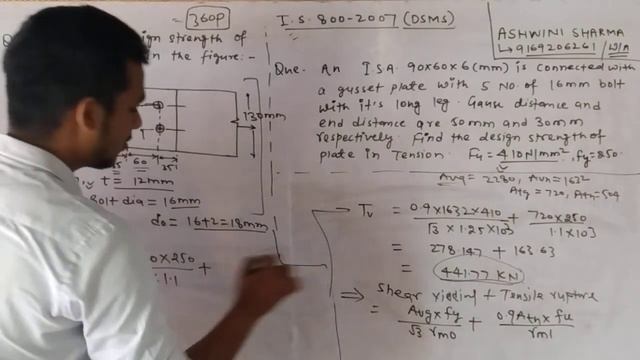 = 360P
I.S. 800-2007 (DSMS)
ASHWINI SHARMA
↳ 9169206261 / W/A
ign strength of
n the figure:-
Que. An I.S.A. 90x60x6(mm) is connected with
a gusset plate with 5 NO. of 16mm bolt
with it's long leg. Gauge distance and
end distance are 50mm and 30mm
respectively. Find the design strength of
plate in Tension. Fu = 410N/mm², fy = 250.
Avg = 2280, Avn = 1632
Atg = 720, Atn = 504
130mm
60
35
t = 12mm
Bolt dia = 16mm
do = 16+2 = 18mm
0x250 +
1.1
Tv = 0.9x1632x410 / √3 x 1.25x10³ + 720x250 / 1.1x10³
= 278.147 + 163.63
= 441.77 KN
⇒ Shear yielding + Tensile rupture
= Avg x fy / √3 rm0 + 0.9Atn x fu / rm1